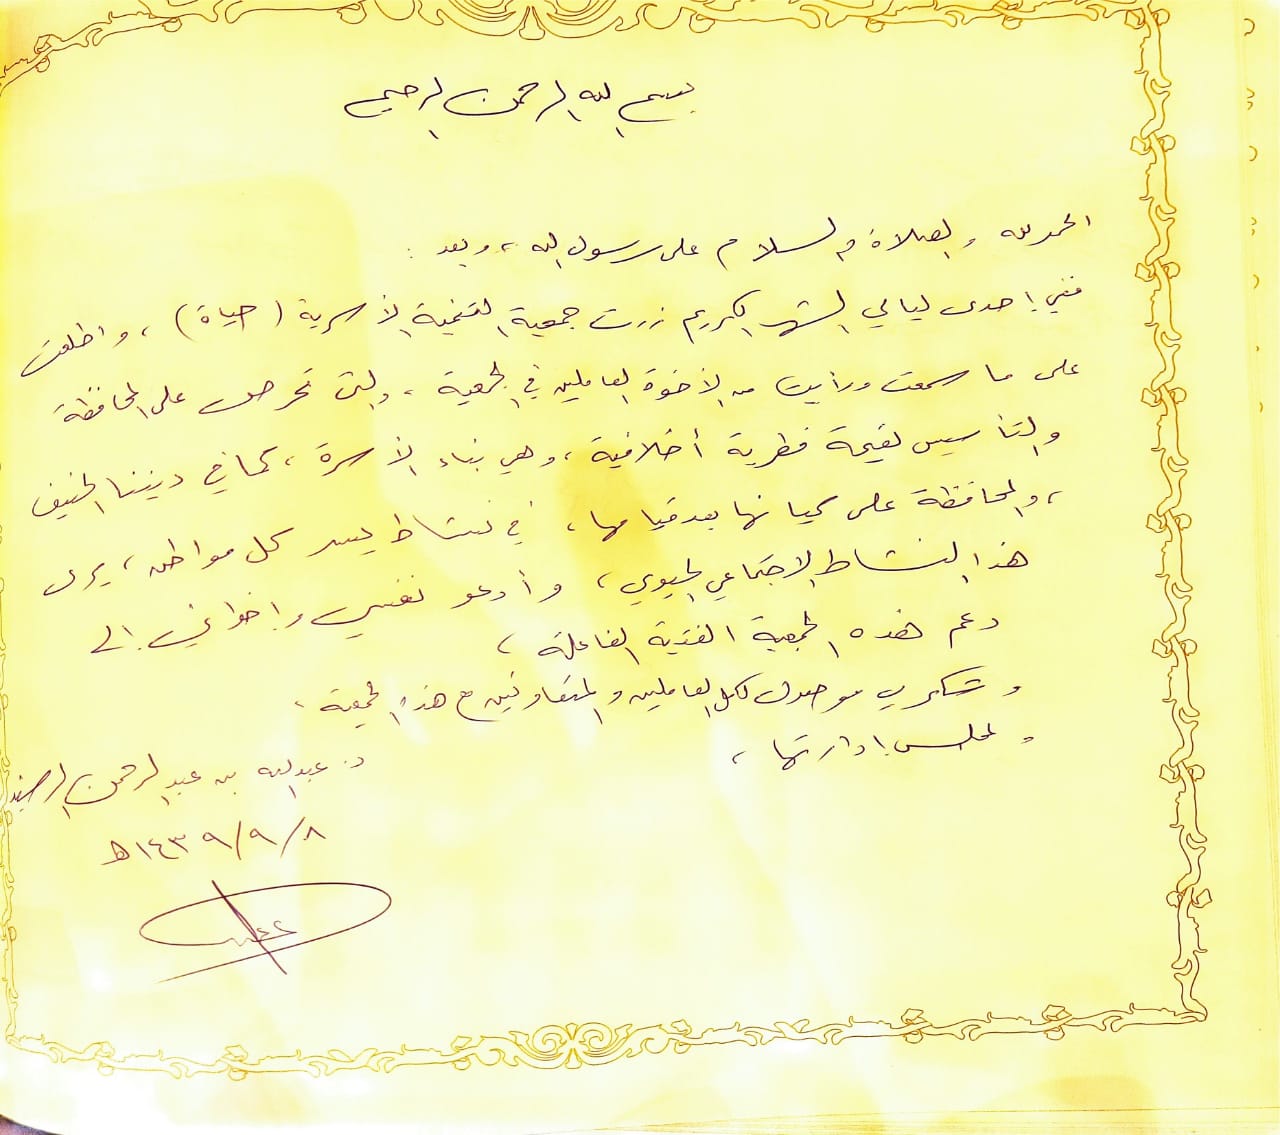 بسم الله الرحمن الرحيم
الحمد لله والصلاة والسلام على رسول الله، وبعد :
ففي إحدى ليالي الشهر الكريم زرت جمعية التنمية الأسرية (حياة)، واطلعت
على ما سمعت ورأيت من الأخوة العاملين في الجمعية، والتي تحرص على المحافظة
والتأسيس لقيمة فطرية أخلاقية، وهي بناء الأسرة، كما في ديننا الحنيف
، والمحافظة على كيانها بعد قيامها، في نشاط يسر كل مواطن، يرى
هذا النشاط الاجتماعي الحيوي، وأدعو نفسي وإخواني إلى
دعم هذه الجمعية الفتية الفاعلة،
وشكري موصول لكل العاملين والمتعاونين مع هذه الجمعية،
ولمجلس إدارتها،
د. عبدالله بن عبدالرحمن
٨/٩/١٤٣٩هـ